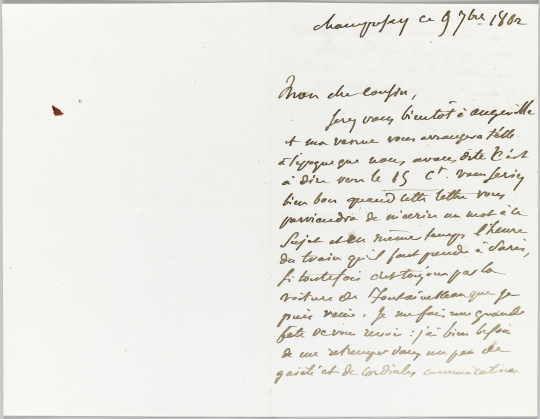 Champrosay ce 9 7bre 1862
Mon cher cousin,
Serez vous bientôt à Augerville
et ma venue vous arrangera t'elle
à l'époque que nous avons dite C'est
à dire vers le 15 Ct. vous seriez
bien bon quand cette lettre vous
parviendra de m'écrire un mot à ce
sujet et en même temps l'heure
du train qu'il faut prendre à Paris,
si toutefois c'est toujours par la
voiture de Fontainebleau que je
puis venir. Je me fais une grande
fête de vous revoir : j'ai bien besoin
de me retremper dans un peu de
gaieté et de cordiales communications.